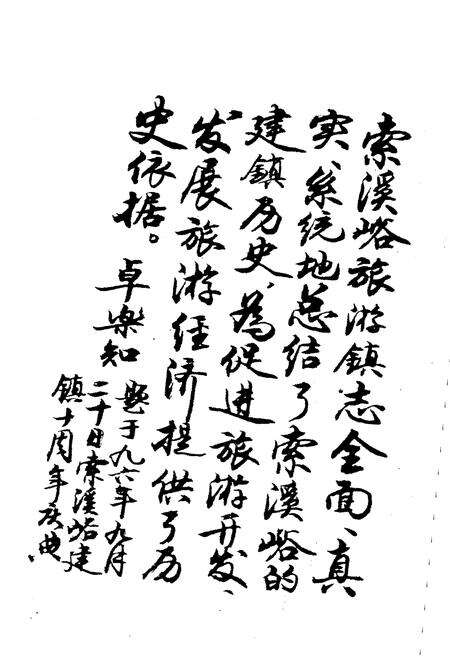 索溪峪旅游鎮志全面、真
实、系统地总结了索溪峪的
建鎮历史,為促进旅游开发、
发展旅游经济提供了历
史依据。
卓樂知
题于九六年九月
二十日索溪峪建
鎮十周年庆典